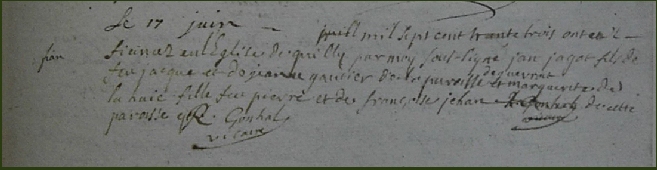 Le 17 juin
mil sept cent trante trois ont eté
fian fiancez en L'Eglise de quilly par moy sous-signé jan jagot fils de
feu jacque et de jeanne gautier de parroisse de guenrout et marguerite de
la fille feu pierre et de françoise jehan de cette
paroisse Gonhal
vicaire